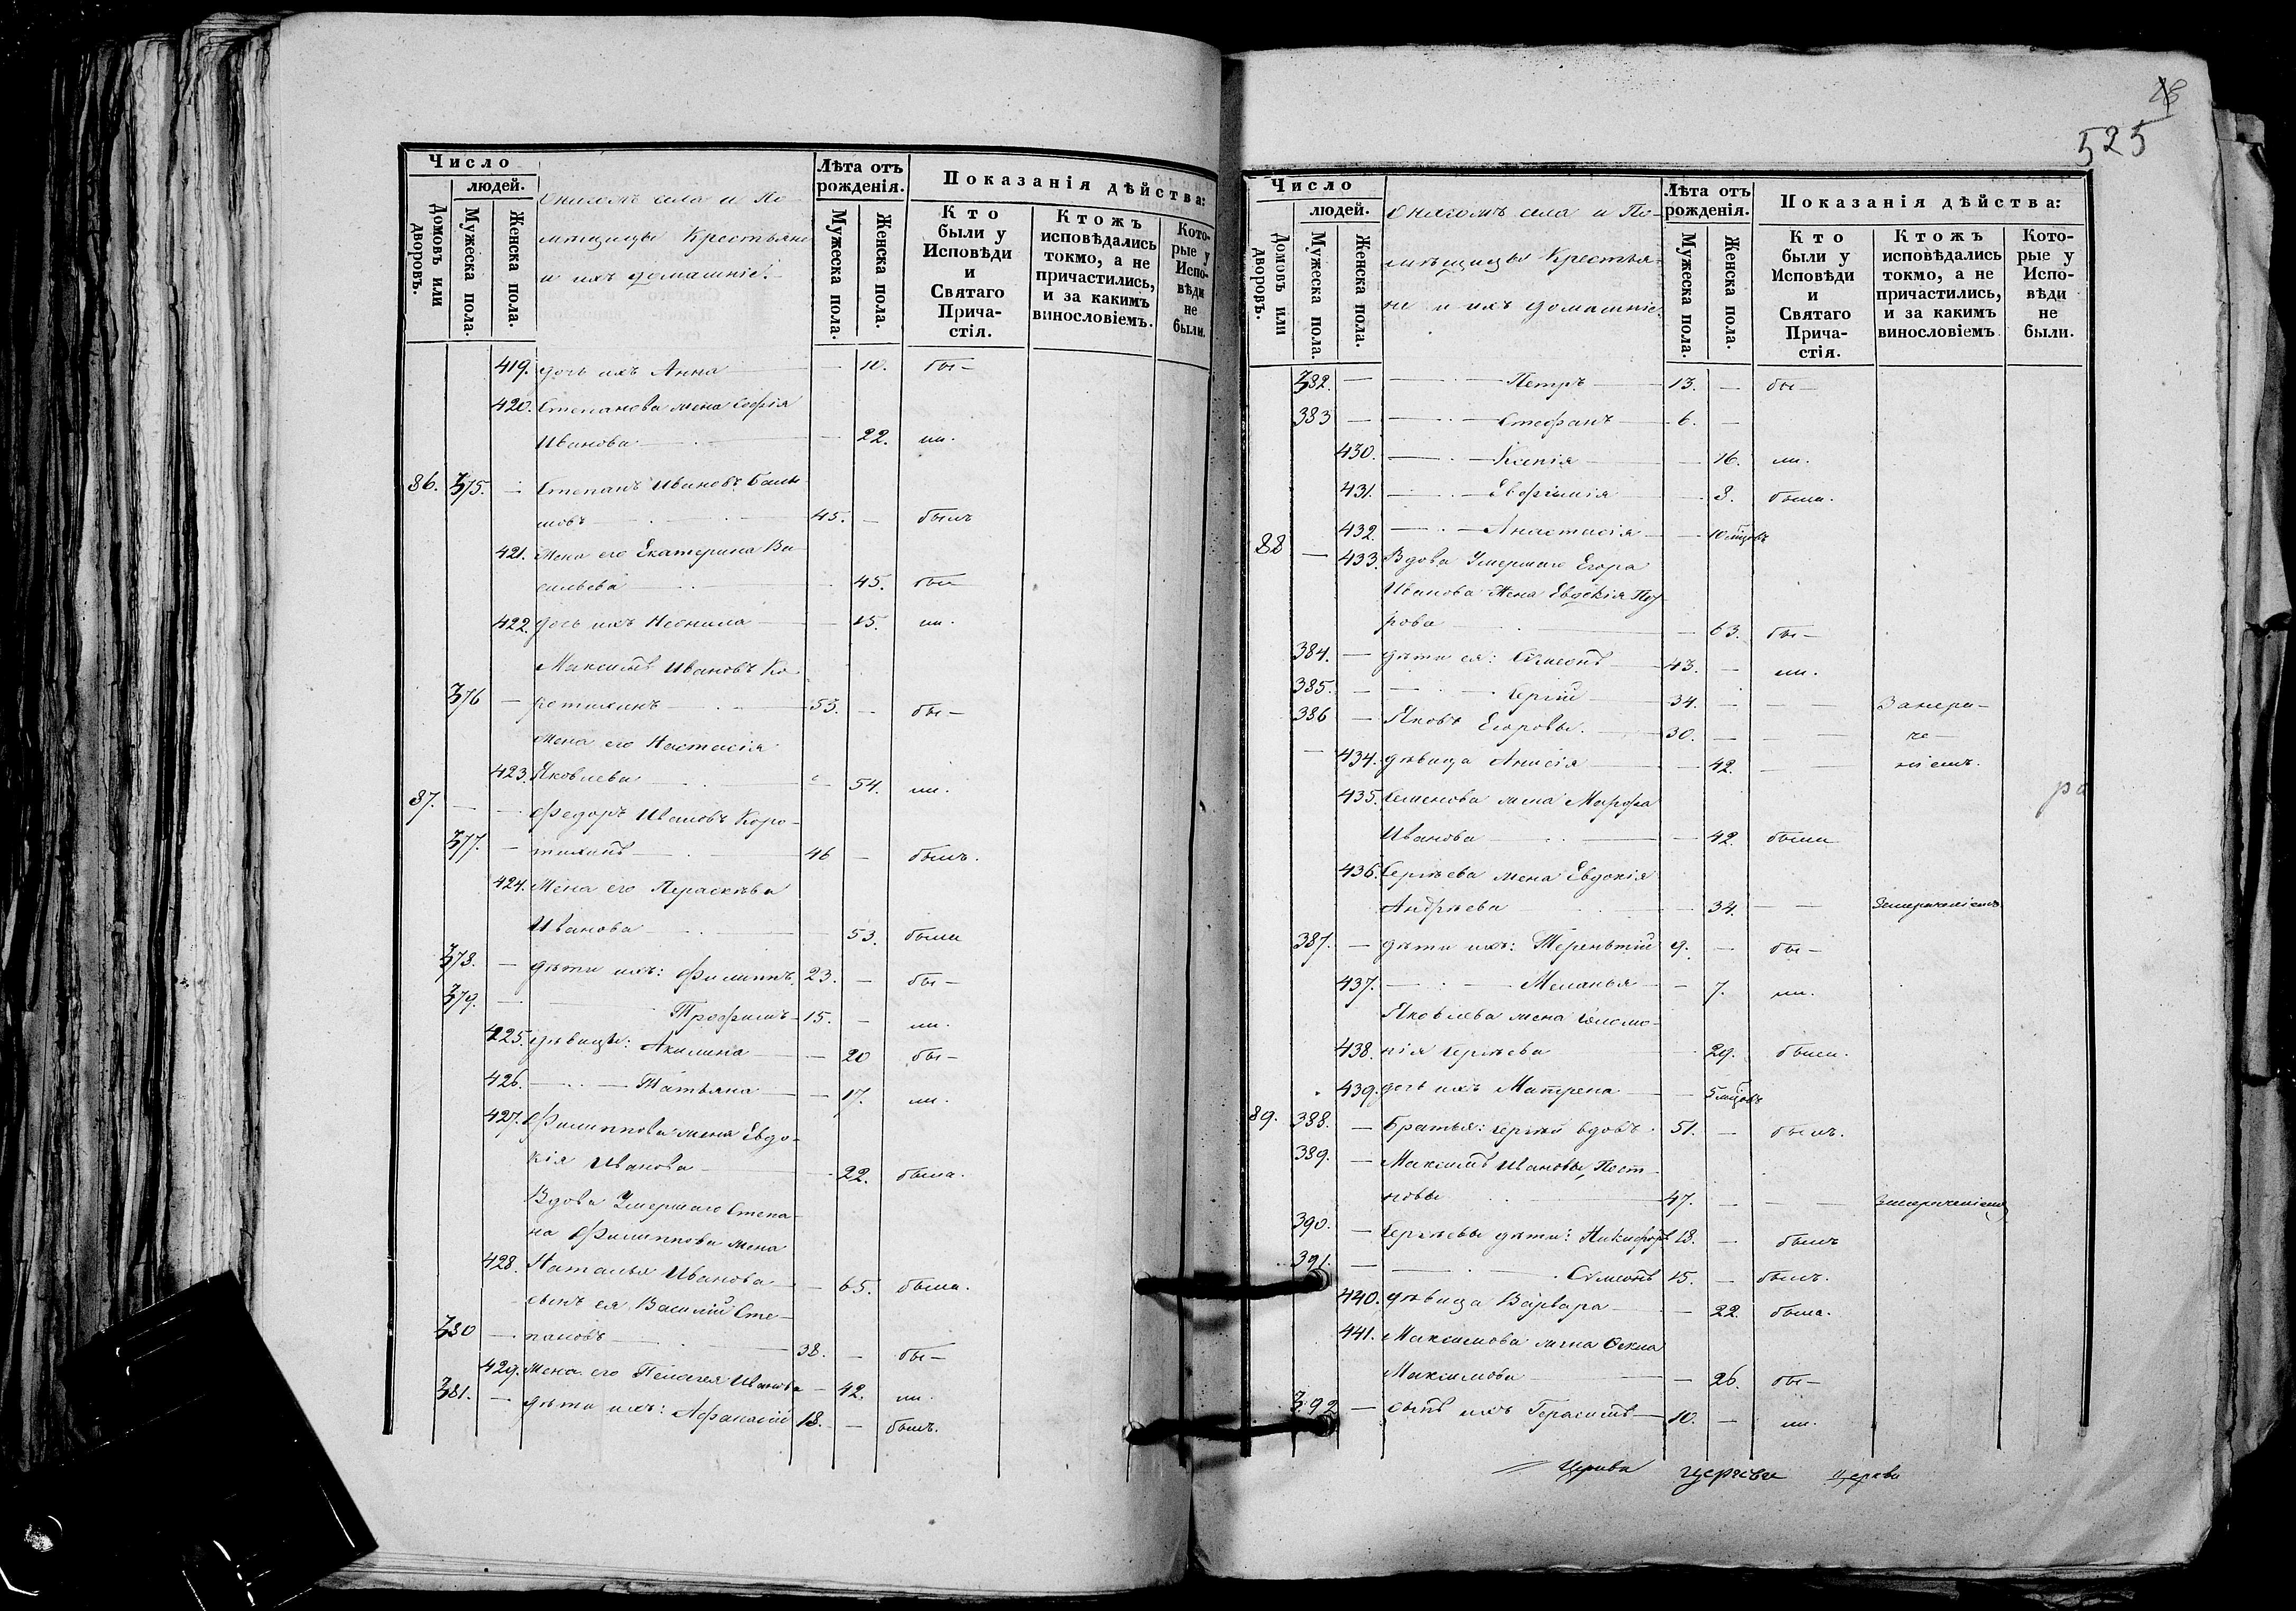 Число
людей.
Домовъ или дворовъ.
Мужеска пола.
Женска пола.
села и По-
мѣщицы Крестьяне
и ихъ домашніе.
Лѣта отъ рожденія.
Мужеска пола.
Женска пола.
Показанія дѣйства:
Кто были у Исповѣди и Святаго Прича-стія.
Ктожъ исповѣдались токмо, а не причастились, и за какимъ винословіемъ.
Кото-рые у Испо-вѣди не были.
419. дочь ихъ Анна — 10. бы—
420. Степанова жена Софія
Иванова — 22. ли.
86. 375. — Степанъ Ивановъ
45. — былъ
421. Жена его Екатерина Ва-
сильева — 45. бы—
422. дочь ихъ Неонила — 15. ли.
Максимъ Ивановъ Ко-
376 — ротихинъ — 53. — бы—
Жена его Настасія
423. Яковлева — 54. ли.
87. — — Федоръ Ивановъ Коро-
377. — тихинъ — 46 — былъ.
424. Жена его Параскѣва
Иванова — 53. была
378. — дѣти ихъ: Филиппъ 23. — бы—
379. — Трофимъ — 15. — ли.
425. дѣвицы: Акилина — 20 бы—
426. — Татьяна — 17. ли.
427. Филиппова жена Евдо-
кія Иванова — 22. была.
Вдова Умершаго Степа-
на Филиппова жена
428. Наталья Иванова — 65. была.
сынъ ея Василій Сте-
380 — пановъ — 38. — бы—
429. Жена его Пелагея Иванова — 42. ли.
381. — дѣти ихъ: Афанасій 18. — былъ.
525
Число
людей.
Домовъ или дворовъ.
Мужеска пола.
Женска пола.
села и По-
мѣщицы Крестья-
не и ихъ домашніе.
Лѣта отъ рожденія.
Мужеска пола.
Женска пола.
Показанія дѣйства:
Кто были у Исповѣди и Святаго Прича-стія.
Ктожъ исповѣдались токмо, а не причастились, и за какимъ винословіемъ
Кото-рые у Испо-вѣди не были.
382. — Петръ — 13. — бы—
383 — Стефанъ — 6. —
430. — Ксенія — 16. ли.
431. — Евфимія — 8. была.
432. — Анастасія — 10 мцовъ
88 — 433. Вдова Умершаго Егора
Иванова Жена Евдокія
рова — 63. бы—
384. — дѣти ея: Сѵмеонъ — 43. — ли.
385. — Сергій — 34. — — Занера-
386 — Яковъ Егоровы. — 30. — — че-
— 434. дѣвица Анисія — 42. — ніемъ.
435. Семенова жена Марфа
Иванова — 42. была
436. Сергѣева жена Евдокія
Андрѣева — 34. — —
387. — дѣти ихъ: Терентій 9. — бы—
437. — Меланья — 7. ли.
Яковлева жена Соломо-
438. нія Сергѣева — 29. была.
439. дочь ихъ Матрена — 5 мцовъ
89. 388. — Братья: Сергѣй вдовъ 51. — былъ.
389. — Максимъ Ивановы
новы — 47. — —
390. — Сергѣевы дѣти: Никифоръ 18. — былъ
391. — Сѵмеонъ 15. — былъ.
440. дѣвица Варвара — 22. была.
441. Максимова жена Фекла
Максимова — 26. бы—
392 — сынъ ихъ Герасимъ — 10. — ли.